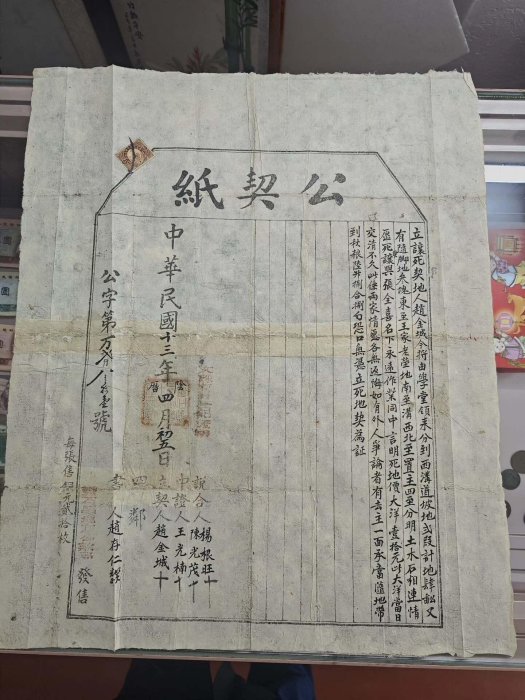 公契紙
立讓死契地人趙金城今將由學堂領來分到西溝道坡地弍段計地肆畝又
有隨脚地叁塊東至王家老塋地南至溝西北至買主四至分明土水石相連情
愿死讓與張全喜名下永遠作業同中言明死地價大洋壹拾元此大洋當日
交清不欠此係兩家情愿各無返悔如有外人爭論者有去主一面承當隨地帶
到秋粮陸升捌合捌勺恐口無憑立死地契為証
中華民國十三年四月初五日
說合人 楊根旺十
陳光茂十
中證人 王光楠十
立契人 趙金城十
四鄰
書人 趙存仁
公字第 號
每張售 元貳拾枚
發售